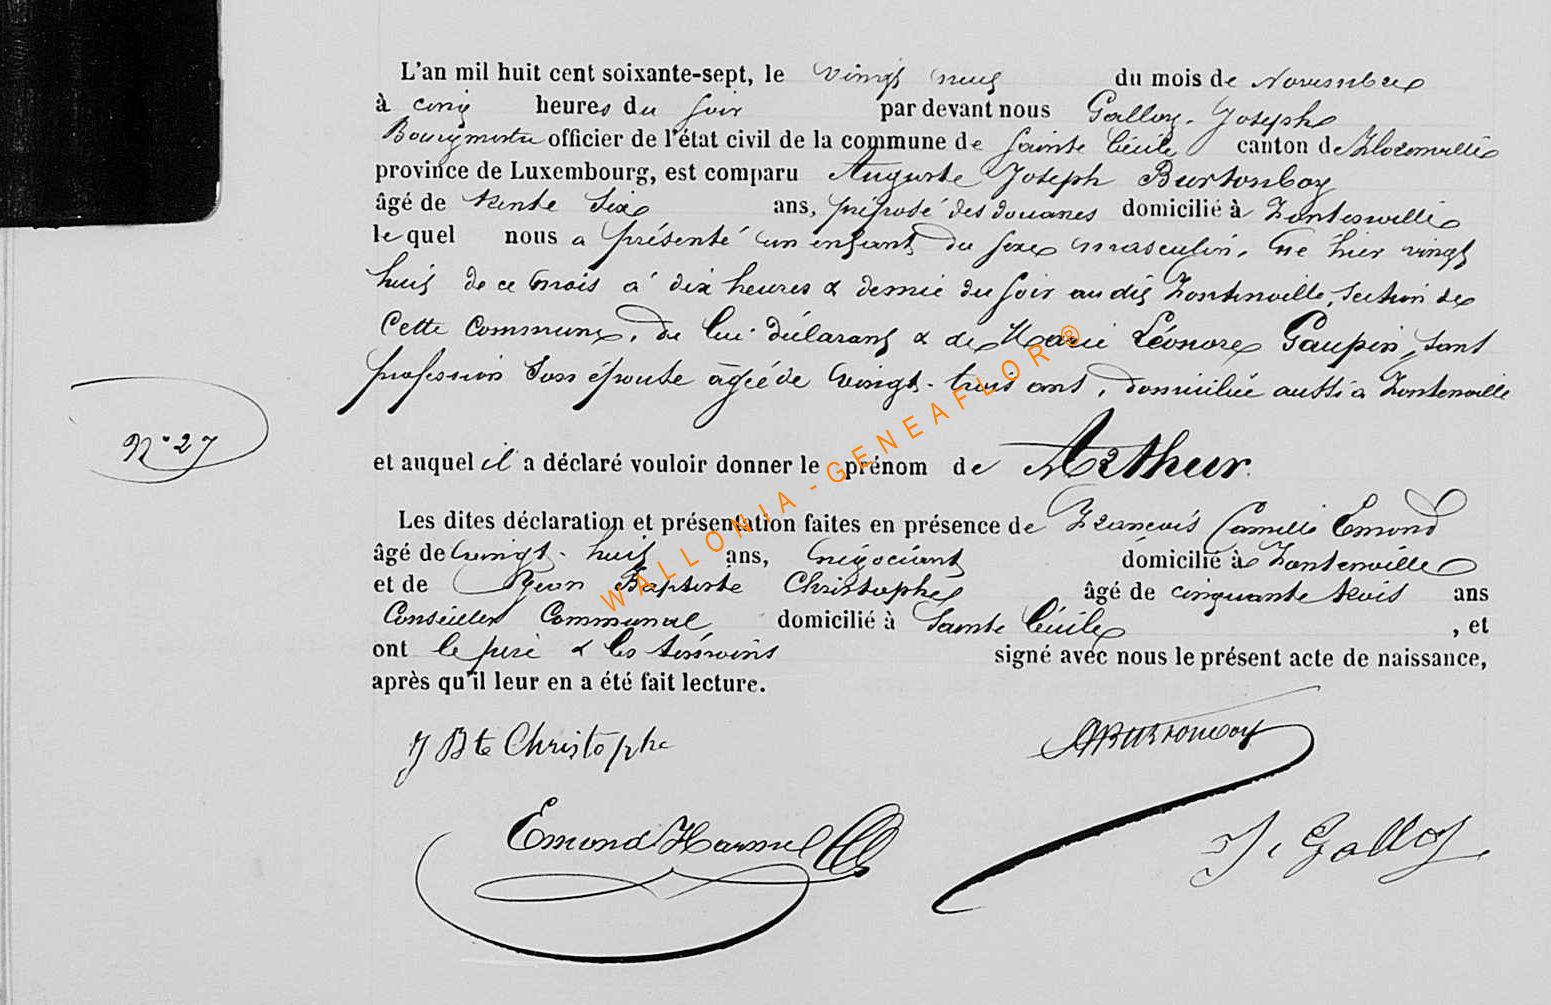 L'an mil huit cent soixante-sept, le vingt neuf du mois de Novembre
à cinq heures du soir par devant nous Galloy Joseph
Bourgmestre officier de l'état civil de la commune de Sainte Cécile canton de Florenville
province de Luxembourg, est comparu Auguste Joseph Burtonboy
âgé de trente six ans, préposé des douanes domicilié à Fontenoille
lequel nous a présenté un enfant du sexe masculin, né hier vingt
huit de ce mois à dix heures & demie du soir au dit Fontenoille, section de
cette commune, de lui déclarant & de Marie Léonore Gaupin, sans
profession son épouse âgée de vingt-trois ans, domiciliée aussi à Fontenoille
N° 27
et auquel il a déclaré vouloir donner le prénom de Arthur.
Les dites déclaration et présentation faites en présence de François Camille Emond
âgé de vingt-huit ans, négociant domicilié à Fontenoille
et de Jean Baptiste Christophe âgé de cinquante trois ans
Conseiller Communal domicilié à Sainte Cécile , et
ont le père & les témoins signé avec nous le présent acte de naissance,
après qu'il leur en a été fait lecture.
J Bte Christophe
ABurtonboy
Emond Harmel
J. Galloy
WALLONIA - GENEAFLOR ®